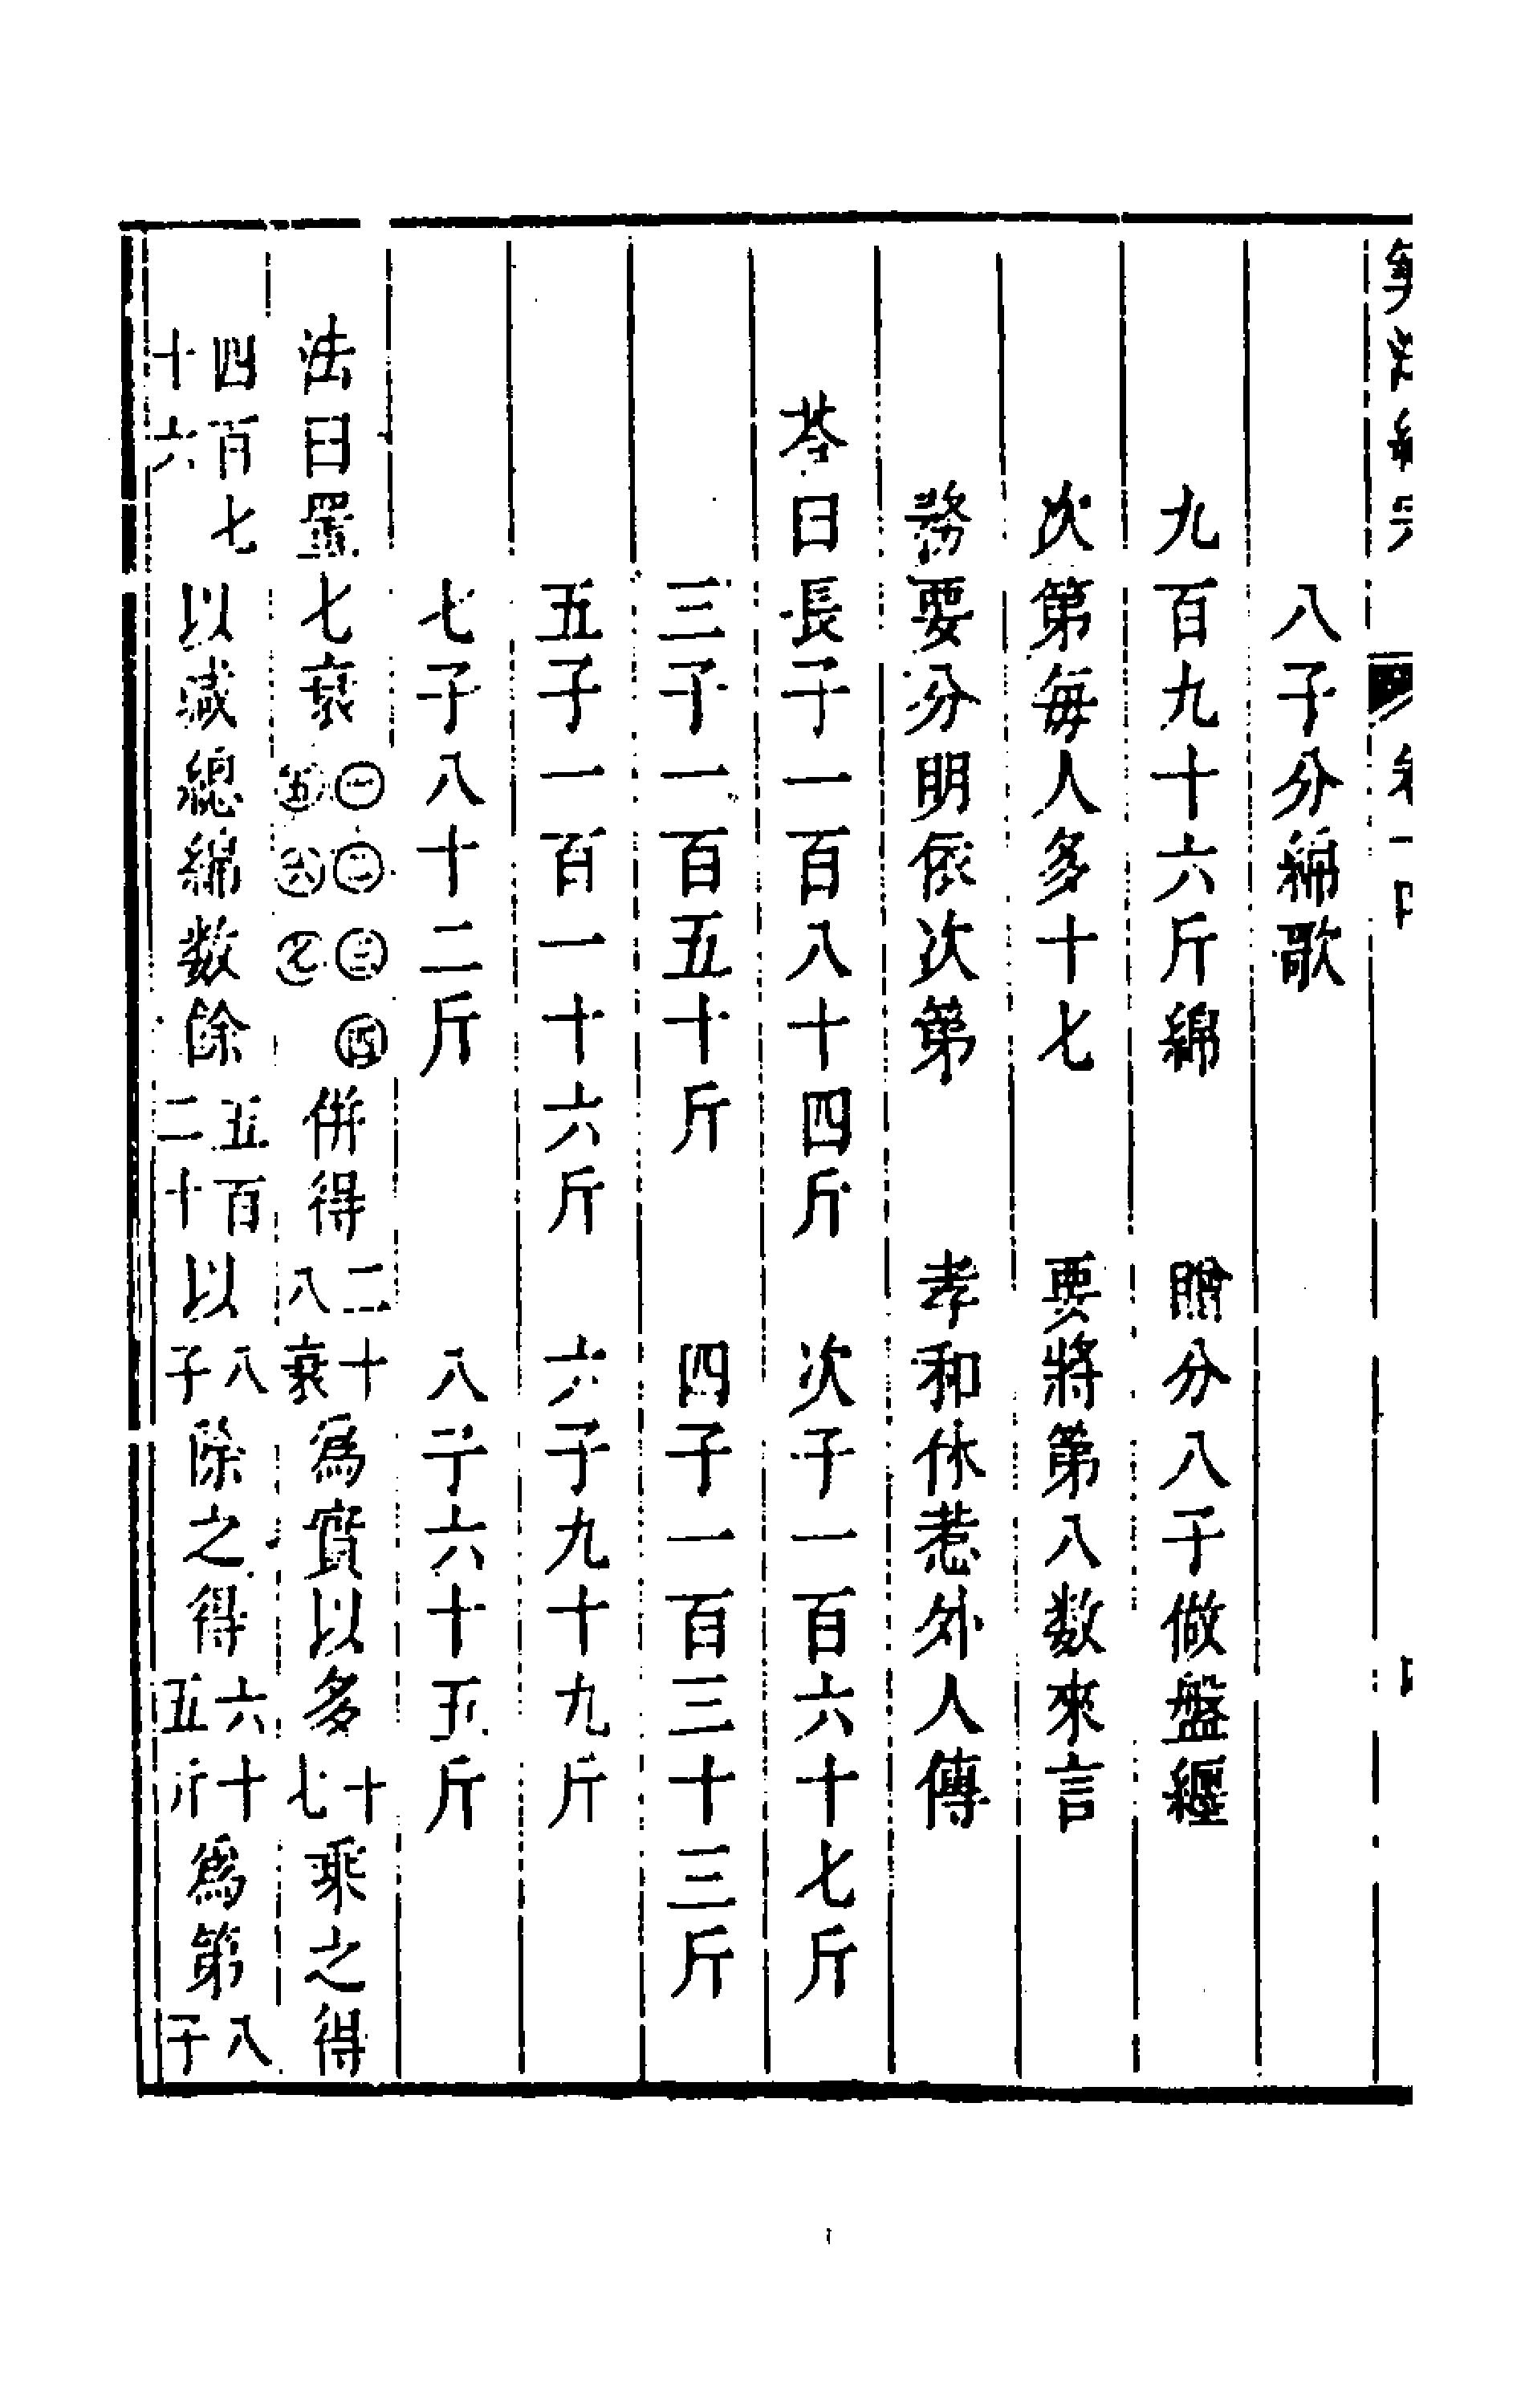 八子分綿歌
九百九十六斤綿　贈分八子做盤纏
次第每人多十七　要將第八数來言
務要分明依次第　孝和休惹外人傳
荅曰長子一百八十四斤　次子一百六十七斤
三子一百五十斤　四子一百三十三斤
五子一百一十六斤　六子九十九斤
七子八十二斤　八子六十五斤
法曰置七衰㊀㊁㊂㊃㊄㊅㊆併得二十八衰為實以多十七乘之得
四百七十六以减總綿数餘五百二十以八子除之得六十五斤為第八子